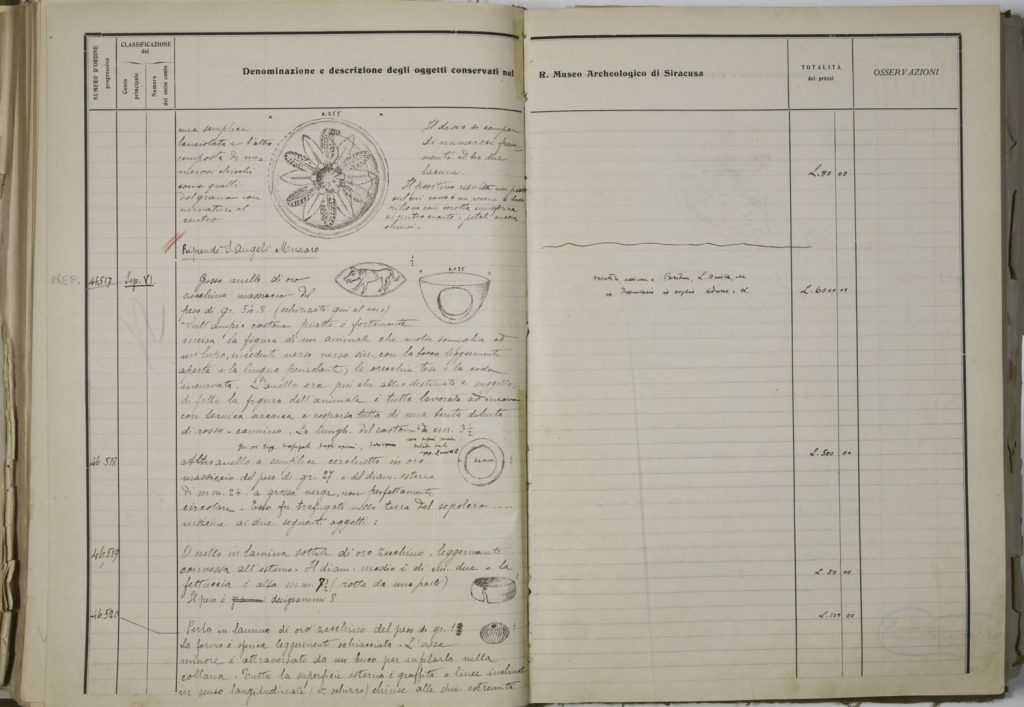 NUMERO D'ORDINE
progressivo
CLASSIFICAZIONE
del
Conto
principale
Numero
del sotto conto
Denominazione e descrizione degli oggetti conservati nel R. Museo Archeologico di Siracusa
TOTALITÀ
dei prezzi
OSSERVAZIONI
una semplice
lanceolata e l'altra
composta di nu-
merosi
come quelli
del grano con
nervatura al
centro
Il disco si compone
di numerosi fram-
menti ed ha due
lacune.
Il positivo
rilievo con
petali ancora
chiusi.
L. 80 00
Riprende S. Angelo Muxaro
OREF.
46517
Sep. VI.
Grosso anello di oro
zecchino massiccio del
peso di gr. 54.8 (schizzato qui al vero)
Sull'ampio castone piatto è fortemente
incisa la figura di un animale che molto somiglia ad
un lupo, incedente verso verso sin. con la bocca leggermente
aperta e la lingua penzolante; le orecchie tese e la coda
incurvata. L'anello era più che altro destinato a suggello
di fatti la figura dell'animale è tutta lavorata ad incavo
con tecnica arcaica e cosparsa tutta di una tinta
di rosso-carminio. La lungh. del castone è di cm. 3 1/2
L. 6000 00
46.518
Altro anello a semplice cerchietto in oro
massiccio del peso di gr. 27 e del diam. esterno
di mm. 24. a grossa verga, non perfettamente
circolare. Esso fu trafugato nella terra del sepolcro
insieme ai due seguenti oggetti:
24 mm
L. 500 00
46,519
Anello in lamina sottile di oro zecchino, leggermente
convessa all'esterno. Il diam. medio è di cm. due e la
fettuccia è alta mm. 7 1/2 (rotta da una parte)
Il peso è decigrammi 8
L. 50 00
46.520
Perla in lamina di oro zecchino del peso di gr. 1
La forma è sferica leggermente schiacciata. L'asse
minore è attraversato da un buco per infilarla nella
collana. Tutta la superficie esterna è graffita a linee
in senso longitudinale (v. schizzo) chiuse alle due estremità
L. 100 00